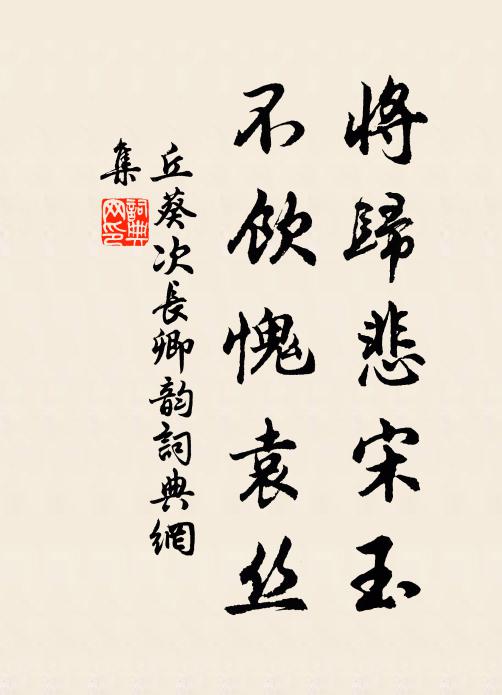 將歸悲宋玉
不飲愧袁丝
丘葵次長卿韵詞典網
集
詞典
网印